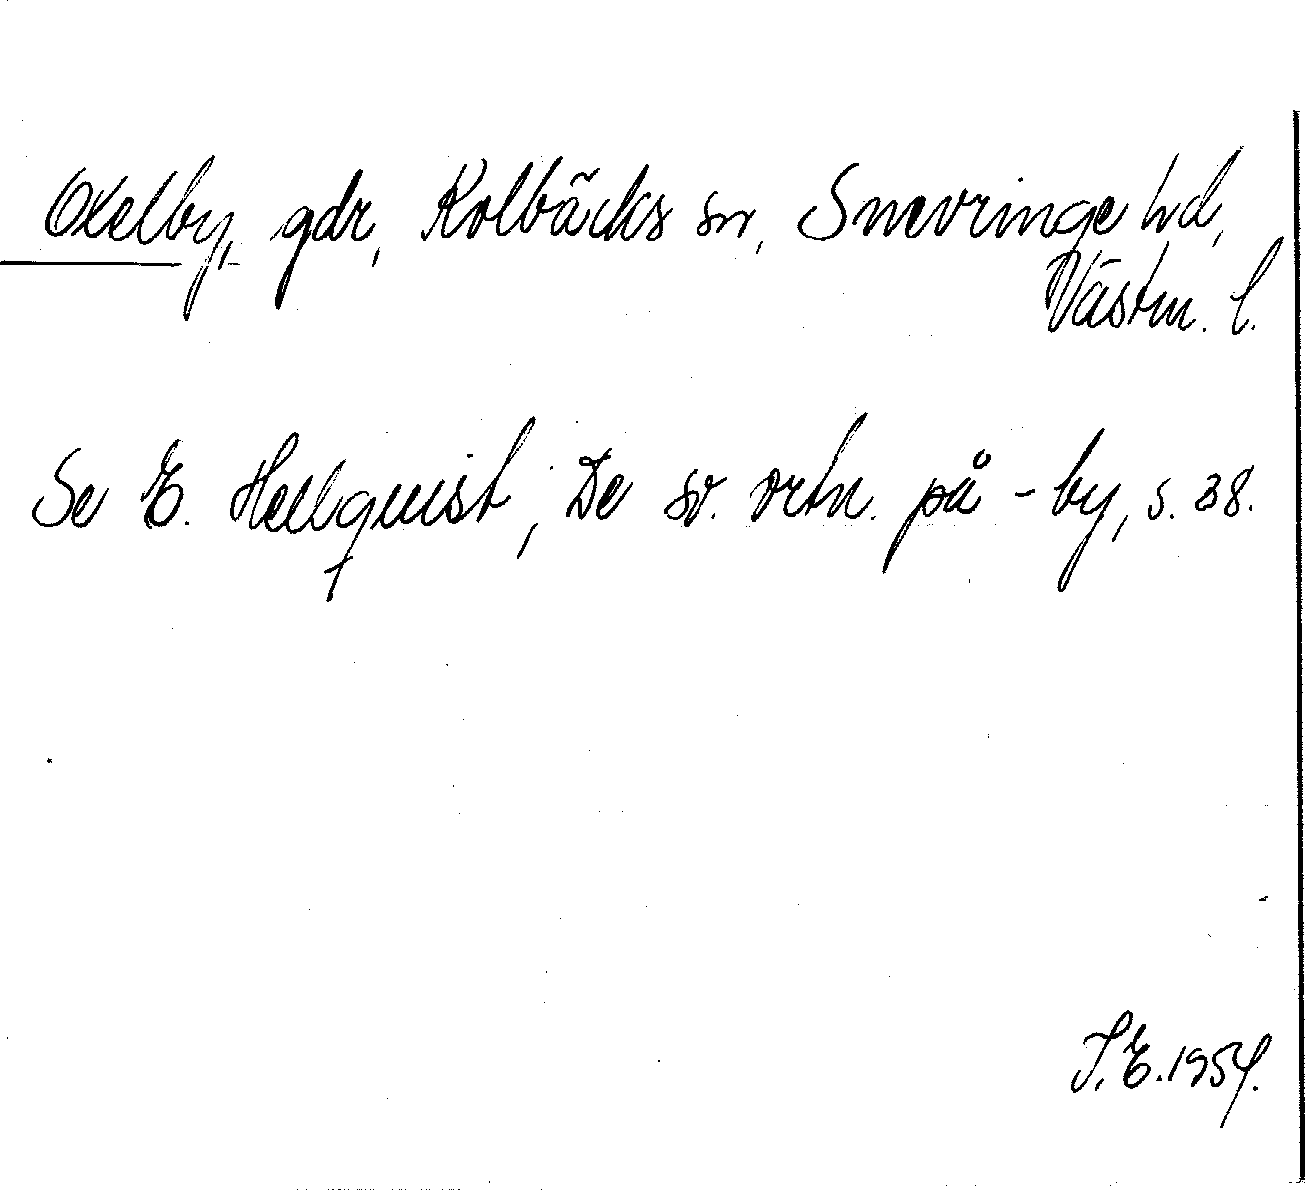 Oxelby, gdr, Kolbäcks sn, Snevringe hd,
Västm. l.
Se E. Hellquist, De sv. ortn. på -by, s. 38.
I. E. 1954.